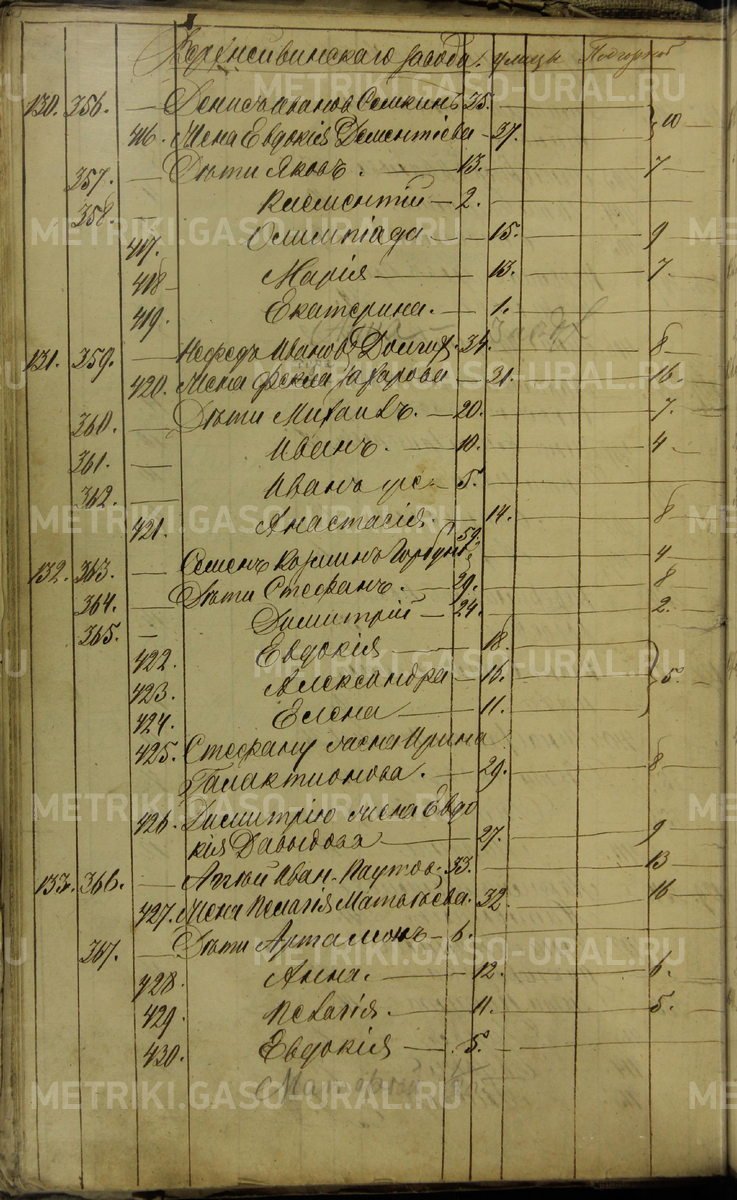 Верхнейвинскаго завода. улицы Подгорной
130. 356. — Денисъ Ивановъ Семкинъ 35.
416. Жена Евдокія Дементіева — 37. 10
357. — Дѣти Яковъ. — 13. — 7
358. Климентій — 2.
417. Олимпіада — 15. — 9
418 — Марія — 13. — 7
419. Екатерина. — 1.
131. 359. — Нефедъ Ивановъ Долгих. 34. — 8
420. Жена Фекла Захарова — 31. — 16
360. — Дѣти Михаилъ. — 20. — 7.
361. — Иванъ. — 10. — 4
362. — Иванъ же — 5.
421. Анастасія. — 14. — 8
132. 363. — Семенъ Козминъ Горбунов 59. — 4
364. — Дѣти Стефанъ. — 29. — 8
365. — Димитрій — 24. — 2.
422. Евдокія — 18.
423. Александра — 16. 5.
424. Елена — 11.
425. Стефану жена Ирина
Галактионова. — 29. — 8
426. Димитрію жена Евдо
кія Давыдова — 27. — 9
133. 366. — Иван. Паутов. 33. — 13
427. Жена Пелагія Матвѣева. 32. — 16
367. — Дѣти Артамонъ — 6.
428. Анна. — 12. — 6.
429. Пелагія. — 11. — 5.
430. Евдокія — 5.